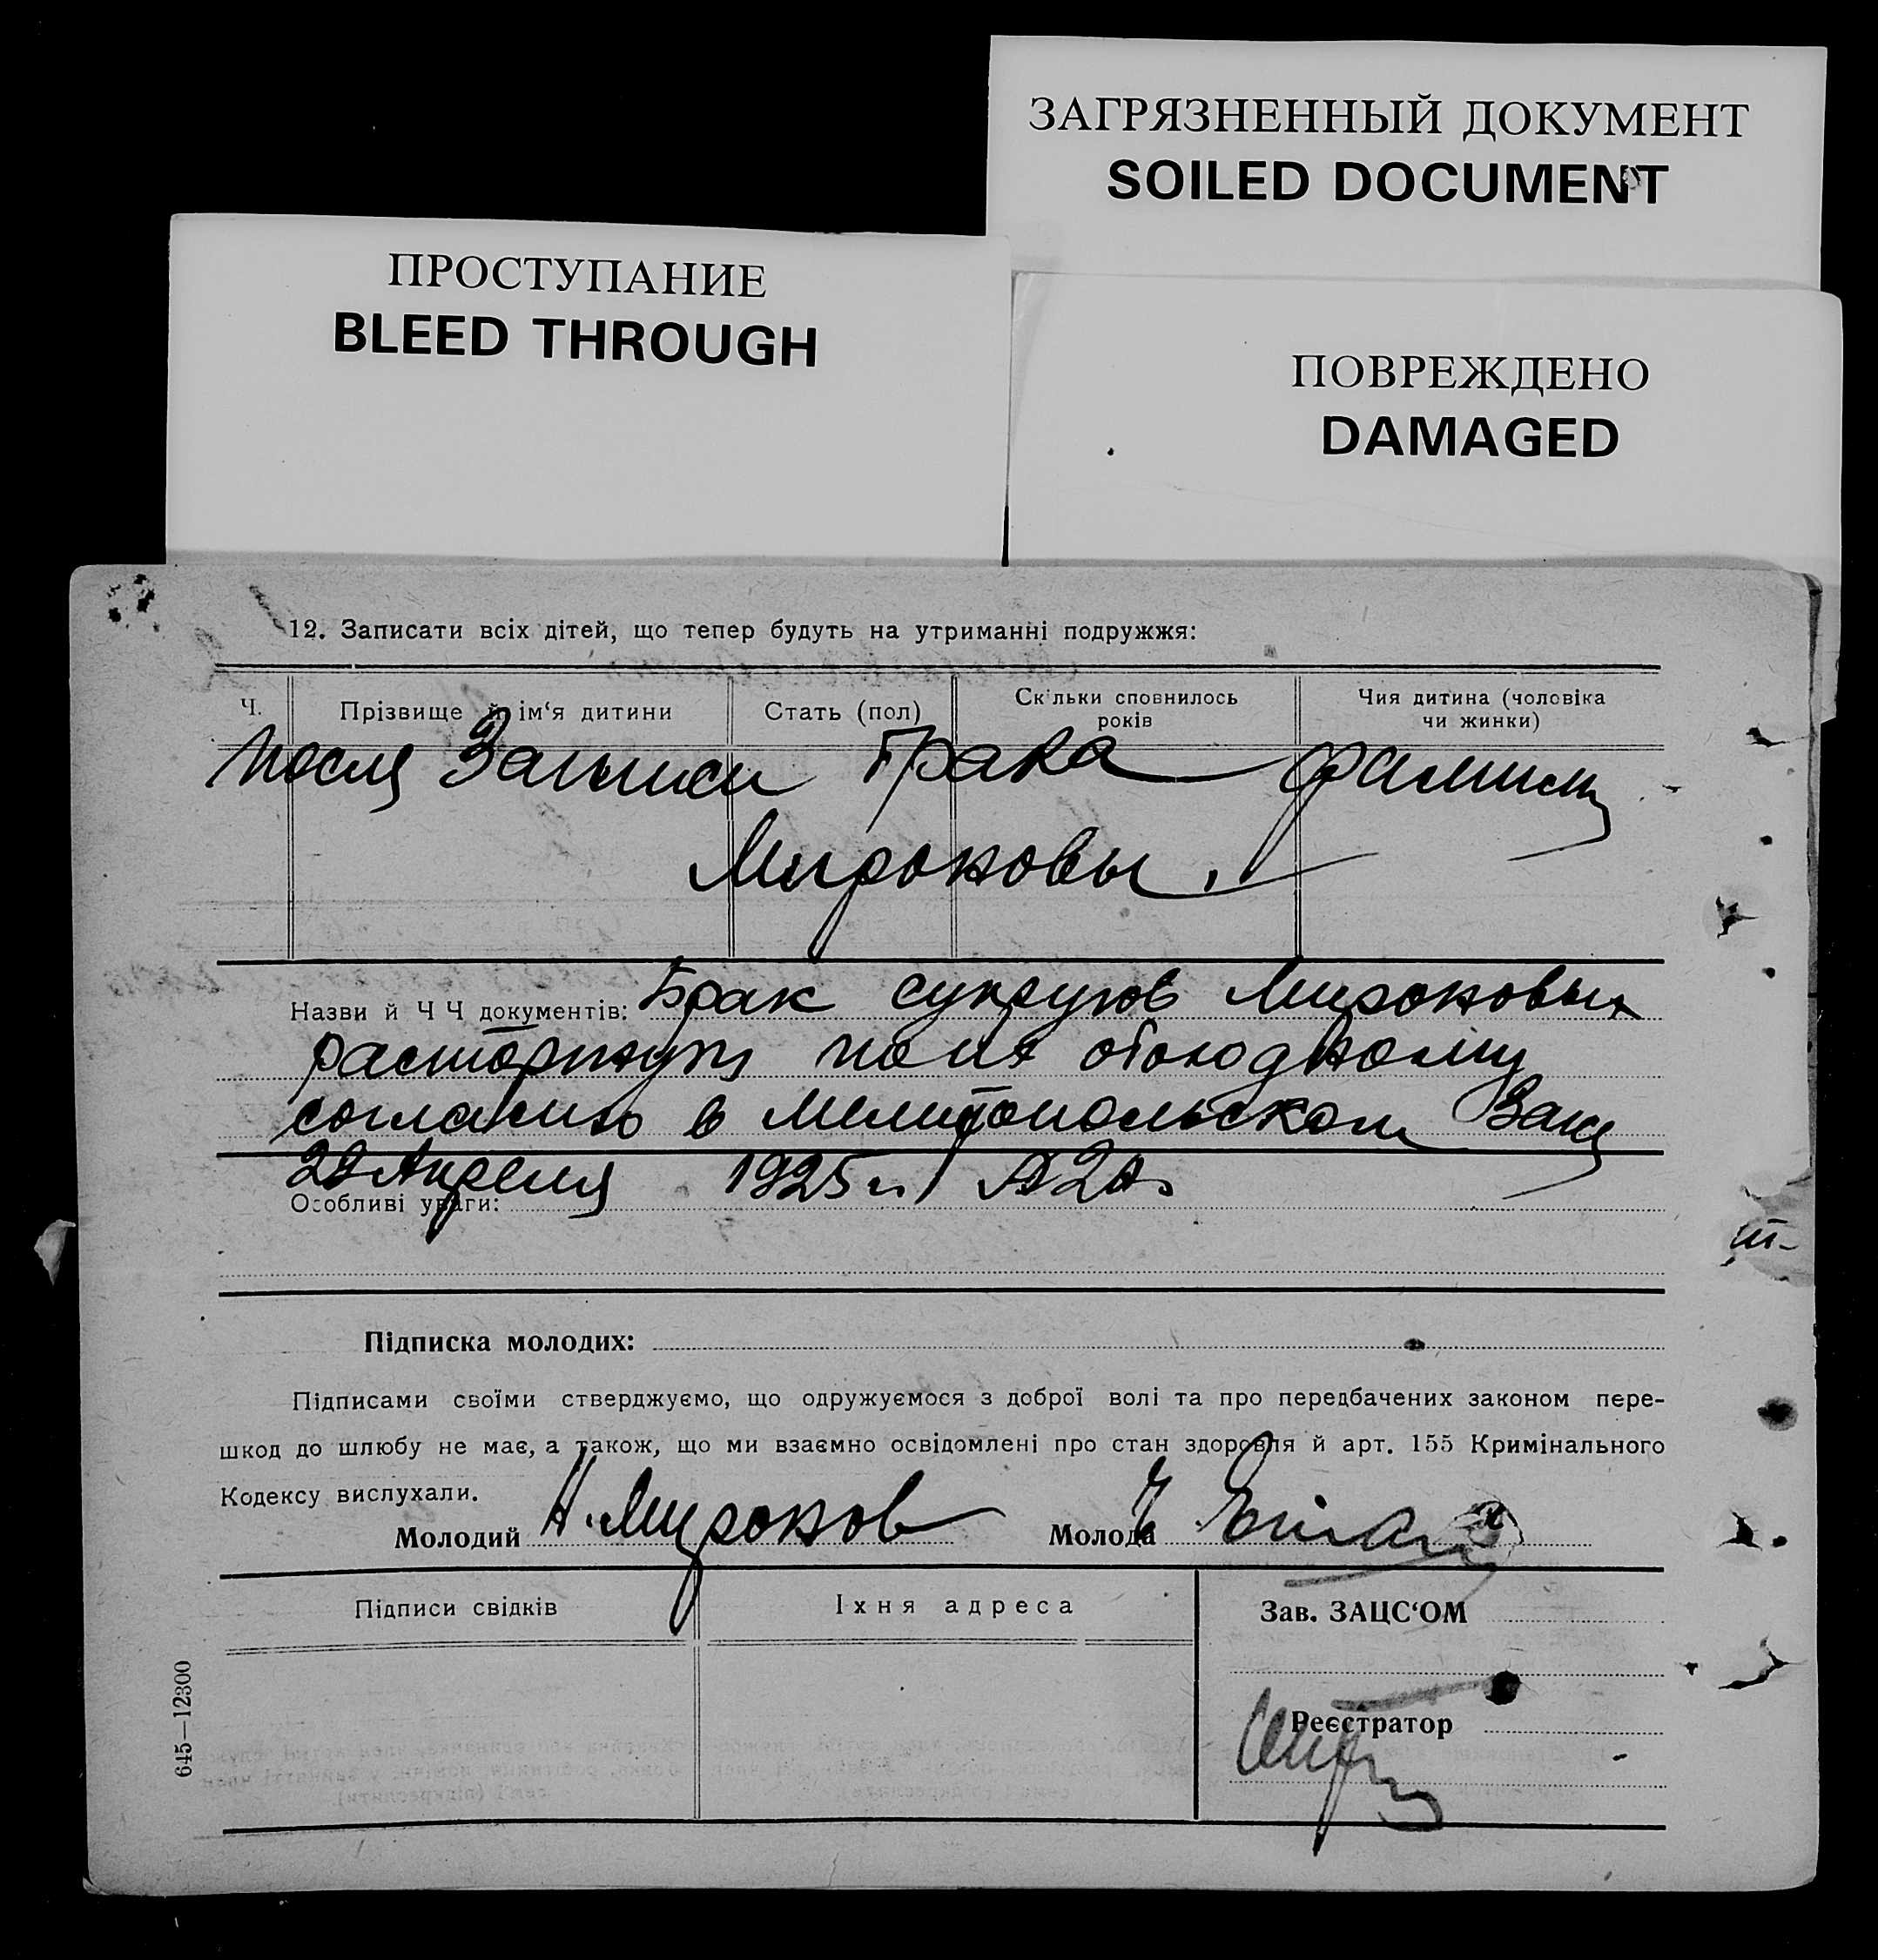 ЗАГРЯЗНЕННЫЙ ДОКУМЕНТ
SOILED DOCUMENT
ПРОСТУПАНИЕ
BLEED THROUGH
ПОВРЕЖДЕНО
DAMAGED
12. Записати всіх дітей, що тепер будуть на утриманні подружжя:
Ч.
Прізвище й ім‘я дитини
Стать (пол)
Скільки сповнилось
років
Чия дитина (чоловіка
чи жинки)
После Записи брака фамилия
Мироновы.
Назви й Ч Ч документів: Брак супругов Мироновых
расторгнут по обоюдному
согласию в Мелитопольском Загсе
22 Апреля 1925 г.
Особливі уваги:
Підписка молодих:
Підписами своїми стверджуємо, що одружуємося з доброї волі та про передбачених законом пере-
шкод до шлюбу не має, а також, що ми взаємно освідомлені про стан здоровля й арт. 155 Кримінального
Кодексу вислухали.
Молодий Миронов Молода
Підписи свідків
Їхня адреса
Зав. ЗАЦС‘ОМ
Реєстратор
645—12300